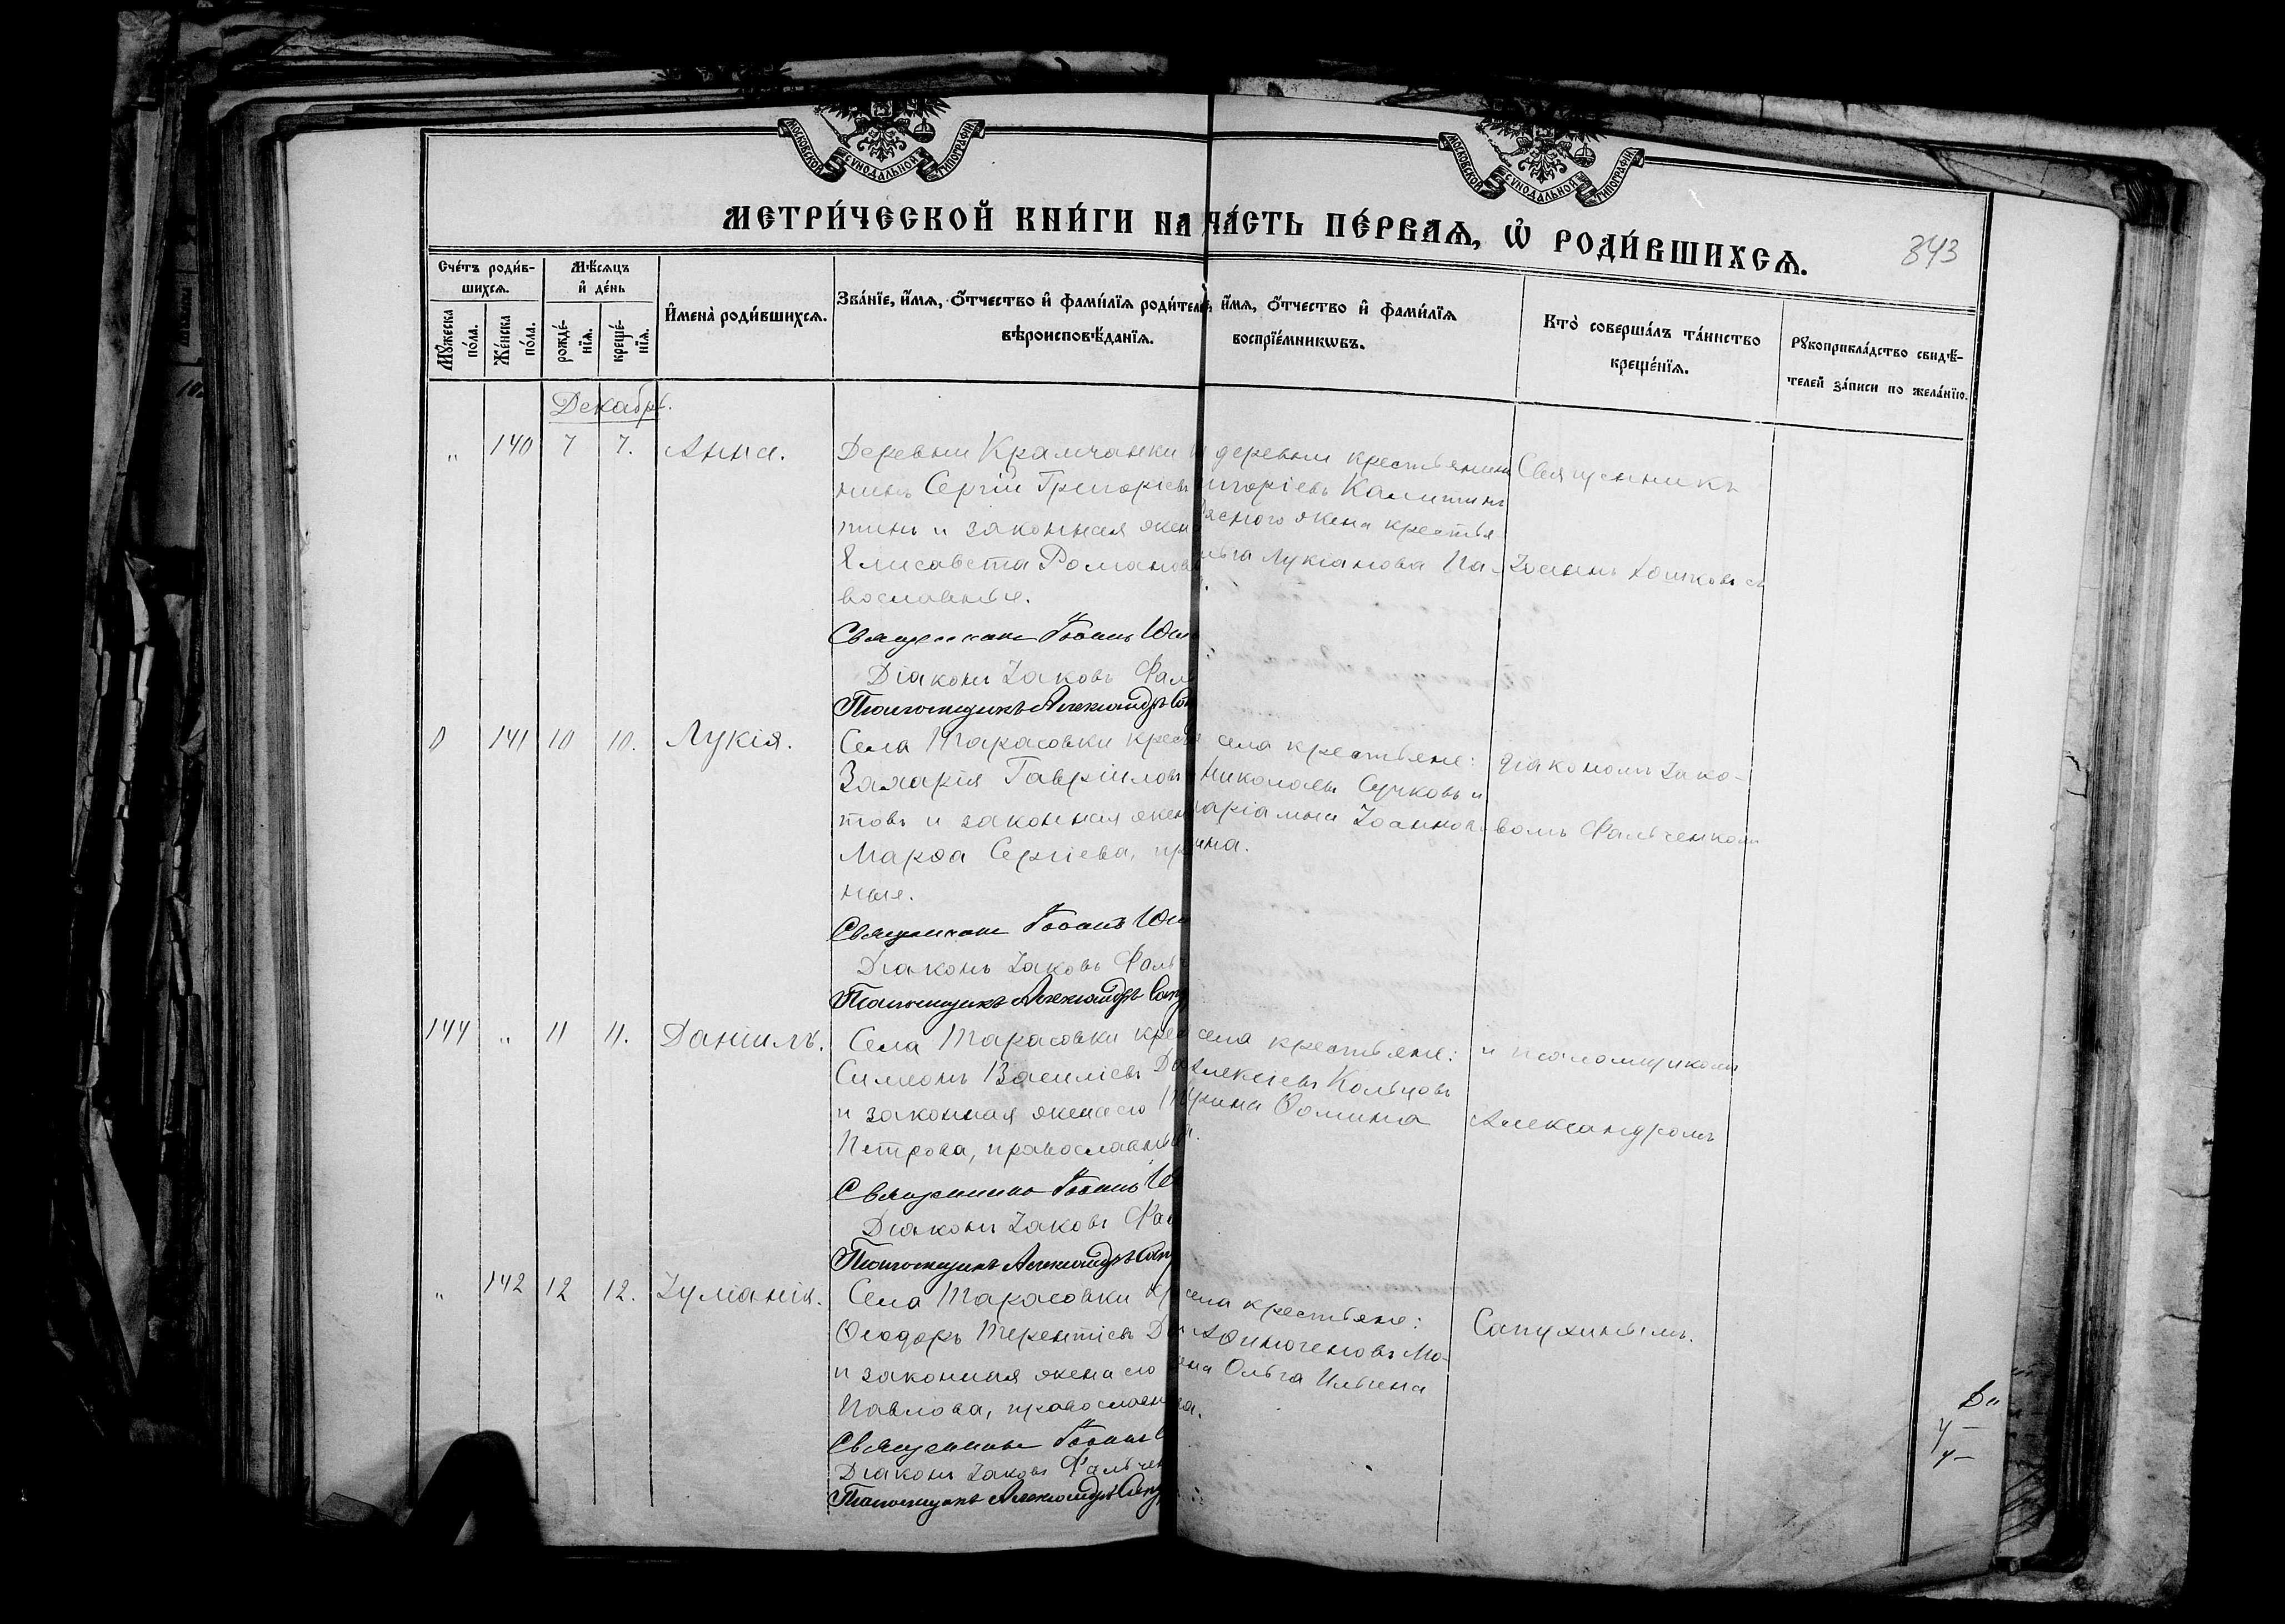 МОСКОВСКОЙ СѴНОДАЛЬНОЙ ТИПОГРАФІИ
МОСКОВСКОЙ СѴНОДАЛЬНОЙ ТИПОГРАФІИ
МЕТРИ́ЧЕСКОЙ КНИ́ГИ НА
ЧА́СТЬ ПЕ́РВАѦ, Ѡ҆ РОДИ́ВШИХСѦ.
343
Сче́тъ роди́в-
шихсѧ.
Мѣ́сѧцъ
и҆ де́нь
Мꙋ́жеска
по́ла.
Же́нска
по́ла.
рожде́-
нїѧ.
креще́-
нїѧ.
И҆мена̀ роди́вшихсѧ.
Зва́нїе, и҆́мѧ, ѻ҆́тчество и҆ фами́лїѧ роди́теле
вѣроисповѣ́данїѧ.
и҆́мѧ, ѻ҆́тчество и҆ фами́лїѧ
воспрїе́мникѡвъ.
Кто̀ соверша́лъ та́инство
креще́нїѧ.
Рꙋкоприкла́дство свидѣ́-
телей за́писи по жела́нїю.
Декабрь.
„ 140 7 7. Анна.
Деревни Крамчанки
нинъ Сергій Григоріевъ
тинъ и законная жена
Елисавета Романов
вославные.
Священникъ Іоаннъ
Діаконъ Іаковъ Фаль
Псаломщикъ Александръ Сап
деревни крестьянинъ
игоріевъ Калитинъ
жена крестья-
Лукіанова
Священникъ
Іоаннъ
141 10 10. Лукія.
Села Тарасовки крест
Захарія Гавріиловъ
товъ и законная жен
Марѳа Сергіева, пр
ные.
Священникъ Іоаннъ
Діаконъ Іаковъ Фальч
Псаломщикъ Александръ Сапу
села крестьяне:
Николаевъ Сучковъ и
аріамна Іоаннова
ина.
діакономъ Іако-
вомъ Фальченкомъ
144 „ 11 11. Даніилъ.
Села Тарасовки крес
Симеонъ Василіевъ
и законная жена его
Петрова, православные
Священникъ Іоаннъ
Діаконъ Іаковъ Фал
Псаломщикъ Александръ Сапу
села крестьяне:
Алексіевъ Кольцовъ
рина Ѳомина
и псаломщикомъ
Александромъ
„ 142 12 12. Іуліанія.
Села Тарасовки кр
Ѳеодоръ Терентіевъ
и законная жена его
Павлова, православн
Священникъ Іоаннъ
Діаконъ Іаковъ Фальчен
Псаломщикъ Александръ Сапу
села крестьяне:
Ольга Ильина
Сапухинымъ.